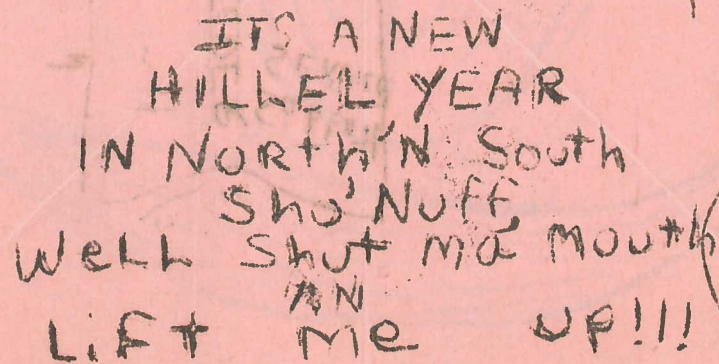 ITS A NEW
HILLEL YEAR
IN NORth'N South
Sho' NuFF
WeLL Shut ma mouth
AN
LiFt me up!!!